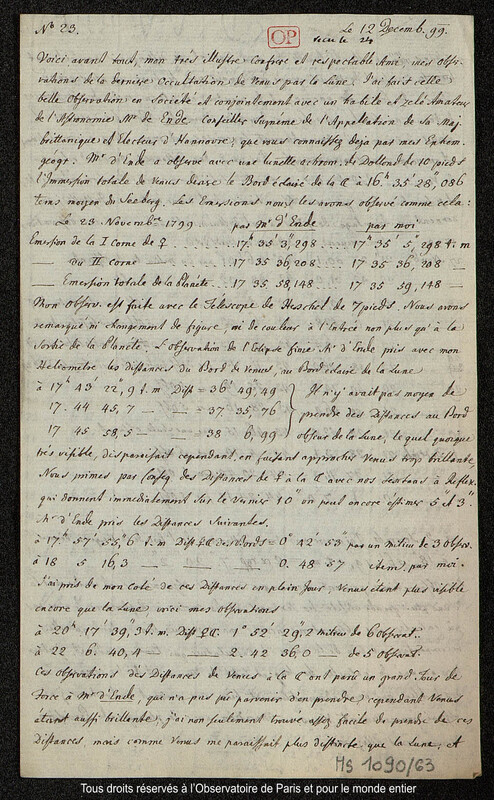 N° 23.
Le 12 Decemb. 99.
OP
Voici avant tout, mon très illustre Confrere et respectable Ami, mes Obser-
vations de la derniere Occultation de Venus par la Lune. J'ai fait cette
belle Observation en Société et conjointement avec un habile et zelé Amateur
de l'Astronomie Mr de Ende Conseiller Suprème de l'Appellation de Sa Maj.
brittanique et Electeur d'Hannovre, que vous connaissez deja par mes Ephem.
géogr. Mr d'Ende a observé avec une lunette achrom. de Dollond de 10 pieds
l'Immersion totale de Venus derriere le Bord éclairé de la ☾ à 16h 35' 28",086
tems moyen du Seeberg. Les Emersions nous les avons observé comme cela:
Le 23 Novembre 1799 par Mr d'Ende par moi
Emersion de la I Corne de ♀ . . . . 17h 35' 3",298 17h 35' 5",298 t. m
— du II corne — . . . . 17 35 36,208 17 35 36,208 —
— Emersion totale de la planète . . 17 35 58,148 17 35 59,148 —
Mon Observ. est faite avec le Telescope de Herschel de 7 pieds. Nous avons
remarqué ni changement de figure, ni de couleur à l'entrée non plus qu'à la
Sortie de la Planète. L'observation de l'Eclipse finie Mr d'Ende prit avec mon
Heliometre les distances du Bord de Venus, au Bord éclairé de la Lune
à 17h 43' 22",9 t. m. Dist = 36' 49",49 Il n'y avait pas moyen de
17. 44 45,7 — — 37. 35,76 prendre des Distances au Bord
17 45 58,5 — — 38 6,99 obscur de la Lune, lequel quoique
très visible, disparaisait cependant en faisant approcher Venus trop brillante,
Nous primes par Conseq des Distances de ♀ à la ☾ avec nos Sextans à Reflex.
qui donnent immediatement sur le Vernier 10" on peut encore estimer 5" et 3".
Mr d'Ende prit les Distances Suivantes,
à 17h 57' 55",6 t. m Dist ♀☾ des Bords = 0° 42' 53" par un milieu de 3 Observ.
à 18 5 16,3 — — — 0. 48 57 — Item par moi.
J'ai pris de mon Coté de ces Distances en plein Jour, Venus étant plus visible
encore que la Lune, voici mes Observations
à 20h 17' 39",3 t. m. Dist ♀☾. 1° 52' 29",2 milieu de 6 Observat.
à 22 6. 40,4 — — — 2. 42 36,0 — de 5 Observat.
Ces Observations des Distances de Venus à la ☾ ont paru un grand Tour de
Force à Mr d'Ende, qui n'a pas pu parvenir d'en prendre cependant Venus
étant aussi brillante, j'ai non seulement trouvé assez facile de prendre de ces
Distances, mais comme Venus me paraissait plus distincte que la Lune, et
Hs 1090/63
Tous droits réservés à l'Observatoire de Paris et pour le monde entier